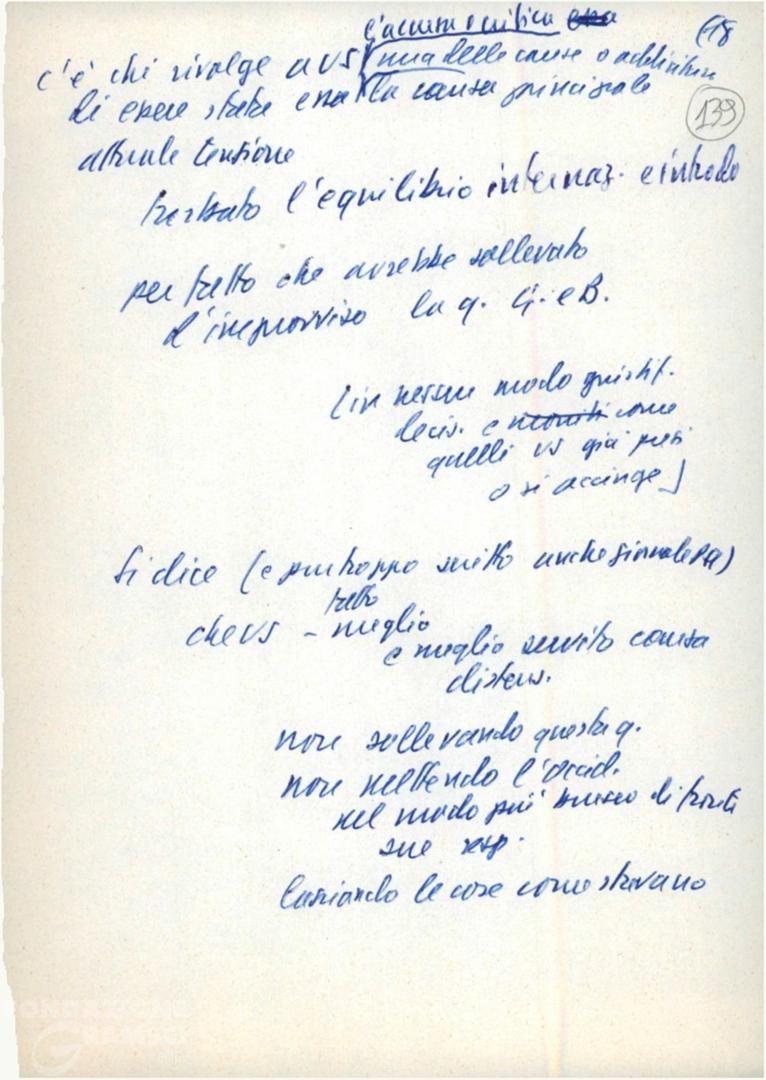 (18
139
l'accusa o critica
c'è chi rivolge a US una delle cause o addirittura
di essere stata la causa principale
attuale tensione
turbato l'equilibrio internaz. e introdo
per fatto che avrebbe sollevato
d'improvviso la q. G. e B.
[in nessun modo giustif.
decis. e moniti come
quelli US già presi
o si accinge]
Si dice (e purtroppo scritto anche giornale PSI)
che US – meglio
fatto
e meglio servito causa
distens.
non sollevando questa q.
non mettendo l'occid.
nel modo più brusco di fronte
sue resp.
lasciando le cose come stavano
FONDAZIONE
GRAMSCI